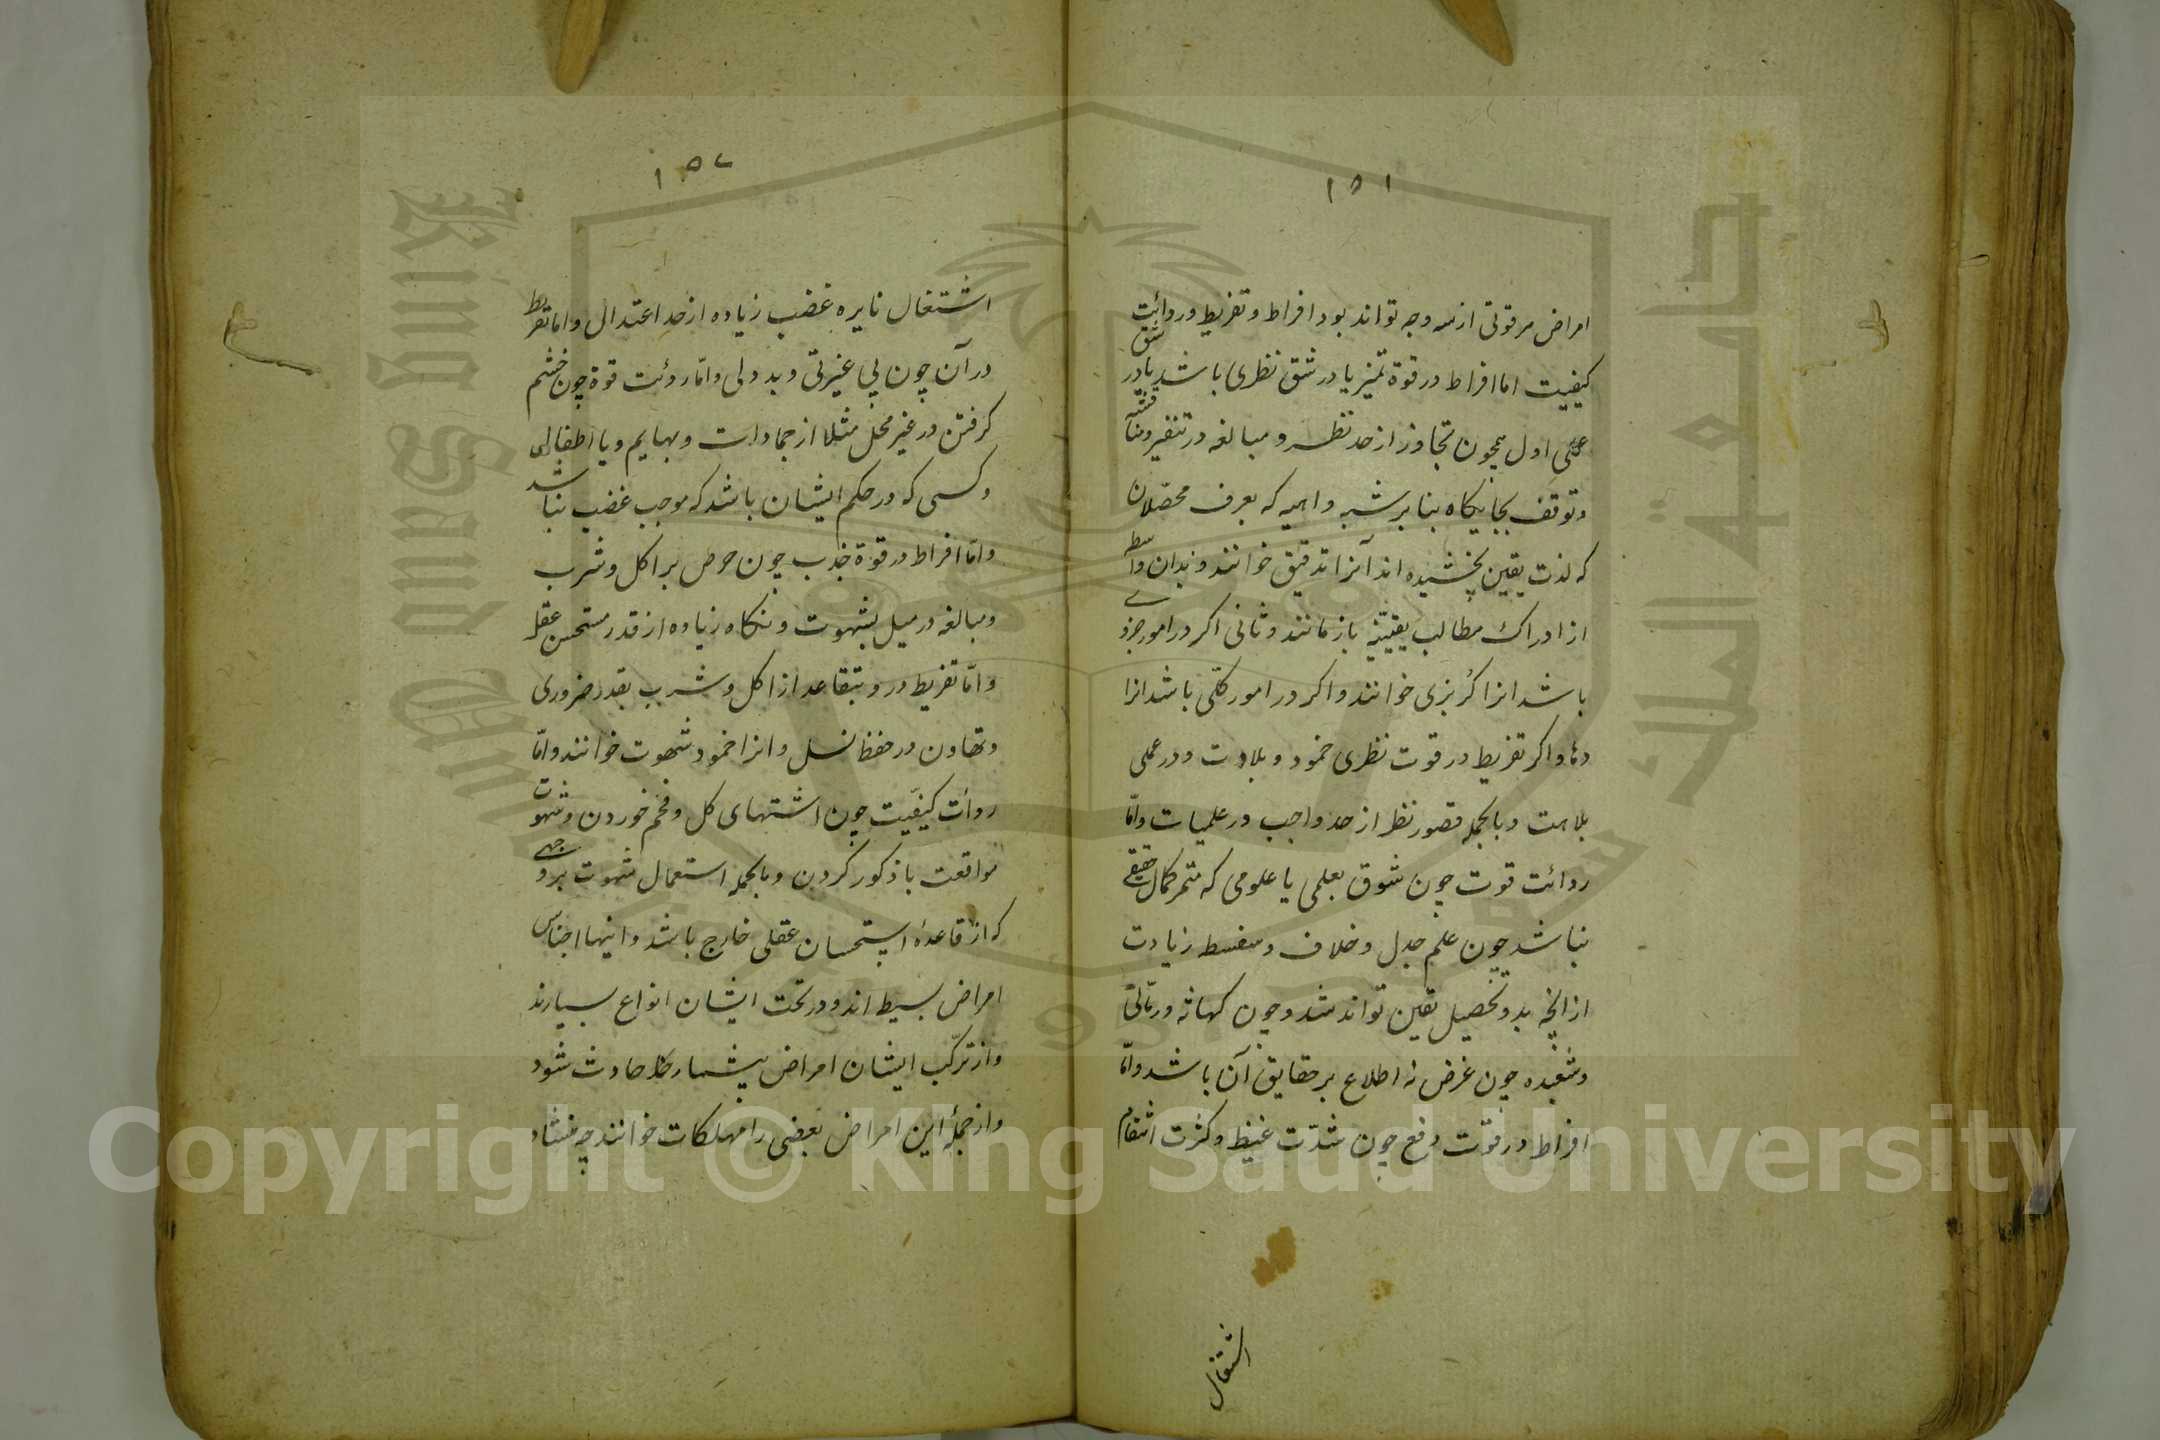 ١٥١
امراض هر قوتی از سه وجه تواند بود افراط و تفریط و ردائت
کیفیت اما افراط در قوة تمیز یا در شق نظری باشد یا در شق
عملی اول همچون تجاوز از حد نظر و مبالغه در تنقیر و مناقشه
و توقف بجایکاه بنا بر شبه واهیه که بعرف محصلان
که لذت یقین نچشیده اند آنرا تدقیق خوانند و بدان واسطه
از ادراک مطالب یقینیه باز مانند و ثانی اکر در امور جزوی
باشد انرا کربزی خوانند و اکر در امور کلی باشد انرا
دها و اکر تفریط در قوت نظری خمود و بلادت و در عملی
بلاهت و بالجمله قصور نظر از حد واجب در علمیات و امّا
ردائت قوت چون شوق بعلمی یا علومی که مثمر کمال حقیقی
نباشد چون علم جدل و خلاف و سفسطه زیادت
از انچه بدو تحصیل یقین تواند شد و چون کهانه و رمّالی
و شعبده چون غرض نه اطلاع بر حقایق آن باشد و امّا
افراط در قوّت دفع چون شدّت غیظ و کثرت انتقام
اشتغال
١٥٢
اشتغال نایره غضب زیاده از حد اعتدال و اما تفریط
در آن چون بی غیرتی و بد دلی و امّا ردئت قوة چون خشم
کرفتن در غیر محل مثلا از جمادات و بهایم و یا اطفالی
و کسی که در حکم ایشان باشد که موجب غضب نباشد
و امّا افراط در قوة جذب چون حرص بر اکل و شرب
و مبالغه در میل بشهوت و نکاه زیاده از قدر مستحسن عقل
و امّا تفریط در و بتقاعد از اکل و شرب بقدر ضروری
و تهاون در حفظ نسل و انرا خمود شهوت خوانند و امّا
ردأت کیفیّت چون اشتهای کل و فحم خوردن و شهوت
مواقعت با ذکور کردن و بالجمله استعمال شهوت بر وجهی
که از قاعدهٔ استحسان عقلی خارج باشد و اینها اجناس
امراض بسیط اند و در تحت ایشان انواع بسیارند
و از ترکّب ایشان امراض بیشمار حادث شود
و از جملهٔ این امراض بعضی را مهلکات خوانند چه منشاء
Copyright © King Saud University